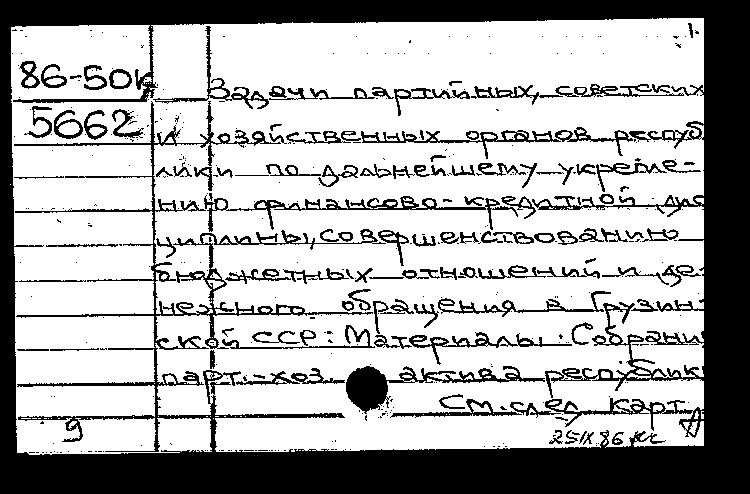 1.
86-50к
Задачи партийных, советских
5662
и хозяйственных органов респуб
лики по дальнейшему укрепле-
нию финансово-кредитной дис
циплины, совершенствованию
бюджетных отношений и де-
нежного обращения в Грузин-
ской ССР: Материалы. Собрания
парт.-хоз. актива республик
См. след. карт.
9
25 IX 86